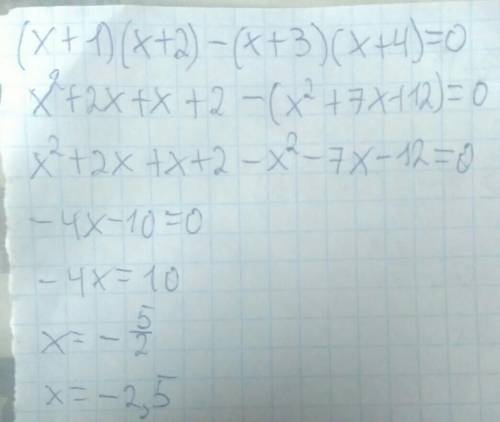 (x+1)(x+2)-(x+3)(x+4)=0
x²+2x+x+2-(x²+7x+12)=0
x²+2x+x+2-x²-7x-12=0
-4x-10=0
-4x=10
x=-5/2
x=-2,5